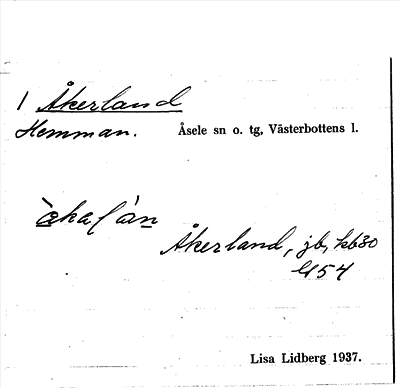 1 Åkerland
Hemman. Åsele sn o. tg, Västerbottens l.
Åkerland, jb, kb30
Lisa Lidberg 1937.